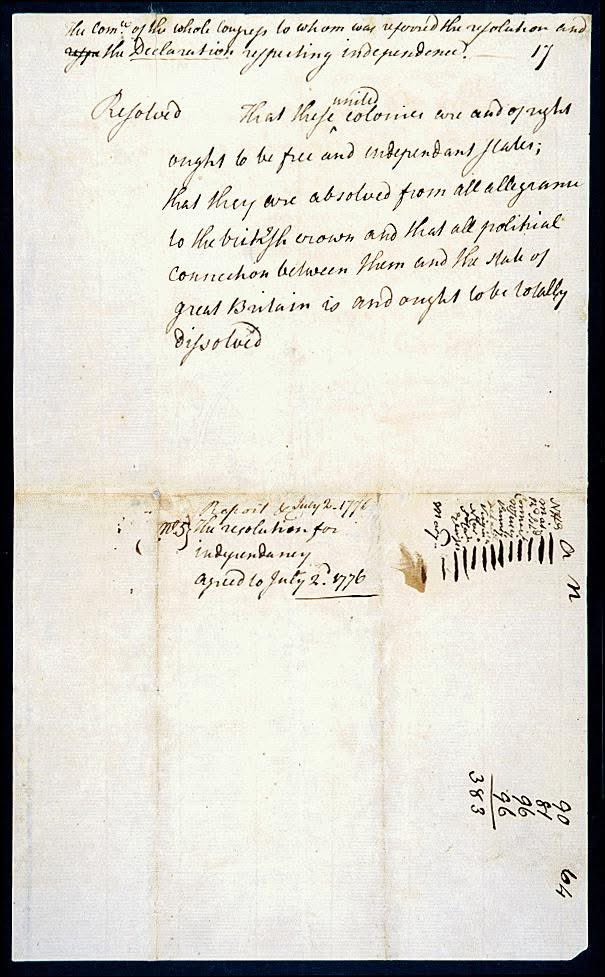 The Com.ee of the whole Congress to whom was referred the resolution and
the Declaration respecting independence. — 17
Resolved That these united colonies are and of right
ought to be free and independant states;
that they are absolved from all allegiance
to the british crown and that all political
connection between them and the state of
great Britain is and ought to be totally
dissolved
Report & July 2. 1776
No. 5} The resolution for
independancy
agreed to July 2d. 1776
a n
90
81
96
96
20
383
64